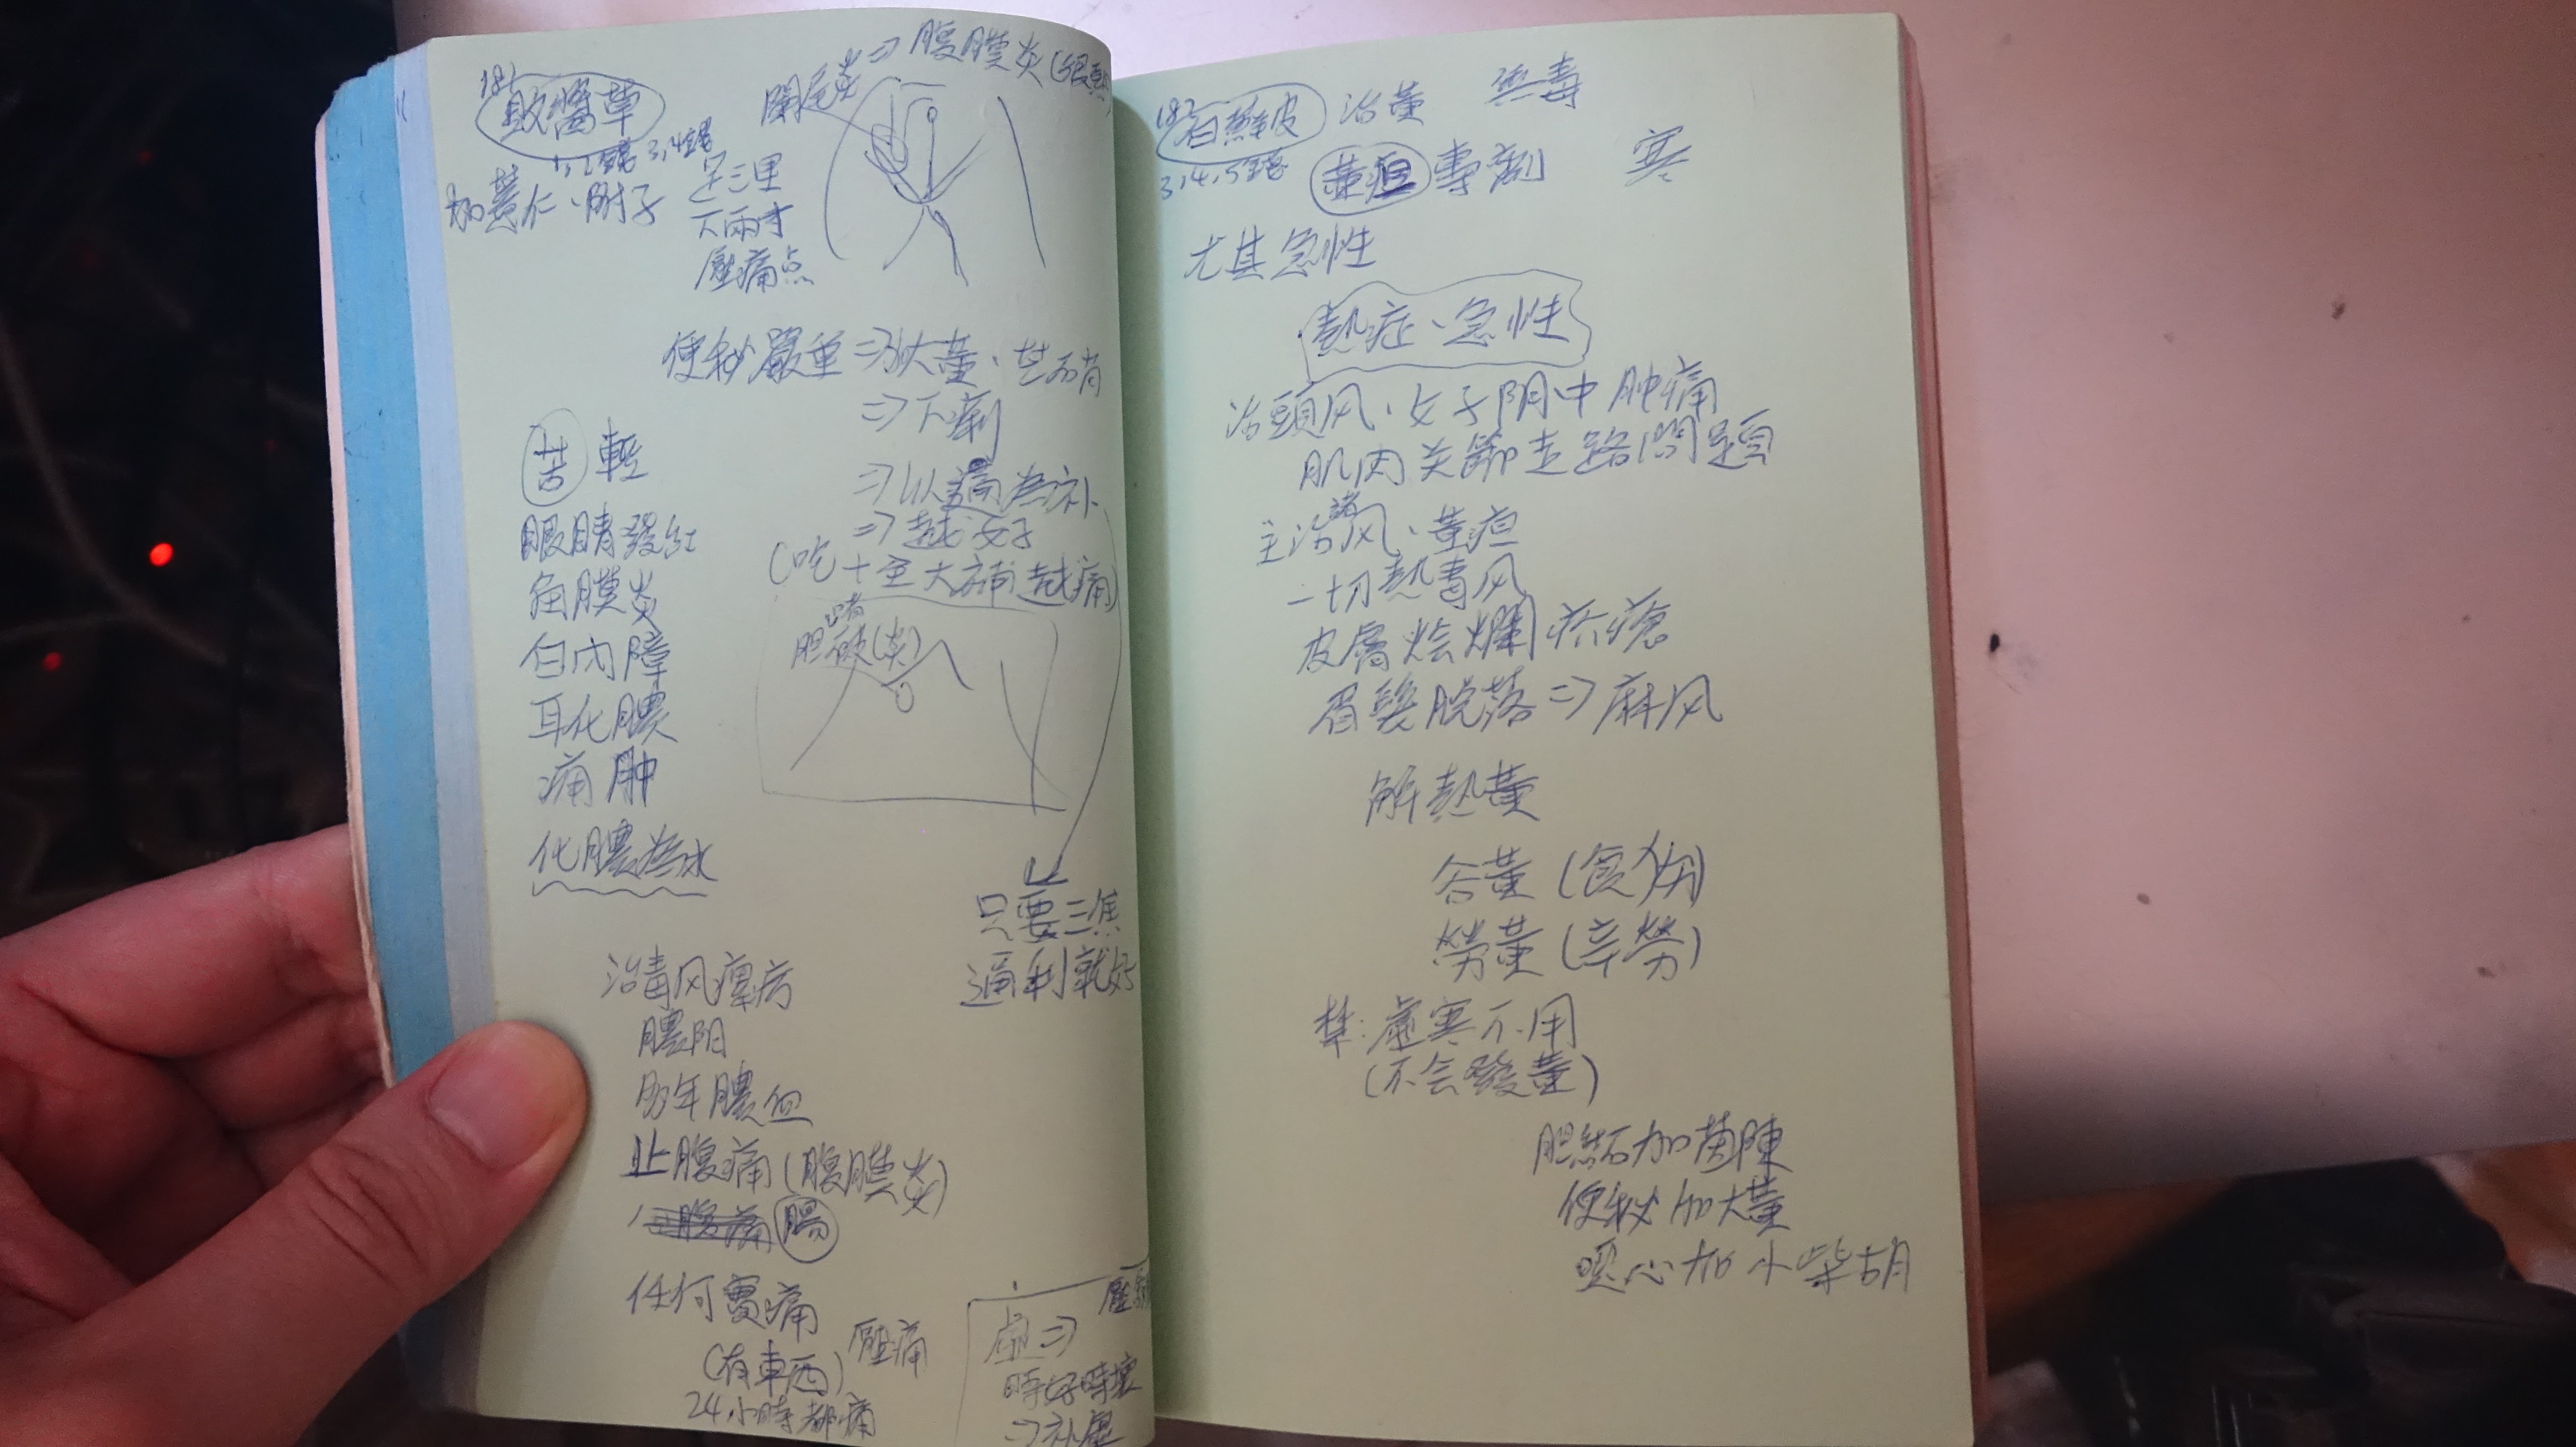 181
敗醬草
1、2錢 3、4錢
加薏仁、附子
闌尾炎⇒腹膜炎(很臭
足三里
下兩寸
壓痛点
便秘嚴重⇒加大黃、芒硝
⇒下痢
⇒以通為补
⇒越好
(吃十全大補越痛)
苦 輕
眼睛發紅
角膜炎
白內障
耳化膿
痛肿
化膿為水
胆結石(炎)
只要三焦
通利就好
治毒风痺病
膿阴
多年膿血
止腹痛(腹膜炎)
腸
任何實痛
(有東西) 壓痛
24小時都痛
虛⇒
時好時壞
⇒补虛
182
白蘚皮 治黃 無毒
3、4、5錢
黃疸專劑 寒
尤其急性
熱症、急性
治頭风、女子阴中肿痛
肌肉关節走路問題
主治諸风、黃疸
一切熱毒风
皮膚烩爛疥瘡
眉髮脫落⇒麻风
解熱黃
谷黃(食物)
勞黃(辛勞)
禁:虛寒不用
(不会發黃)
胆結石加茵陳
便秘加大黃
噁心加小柴胡